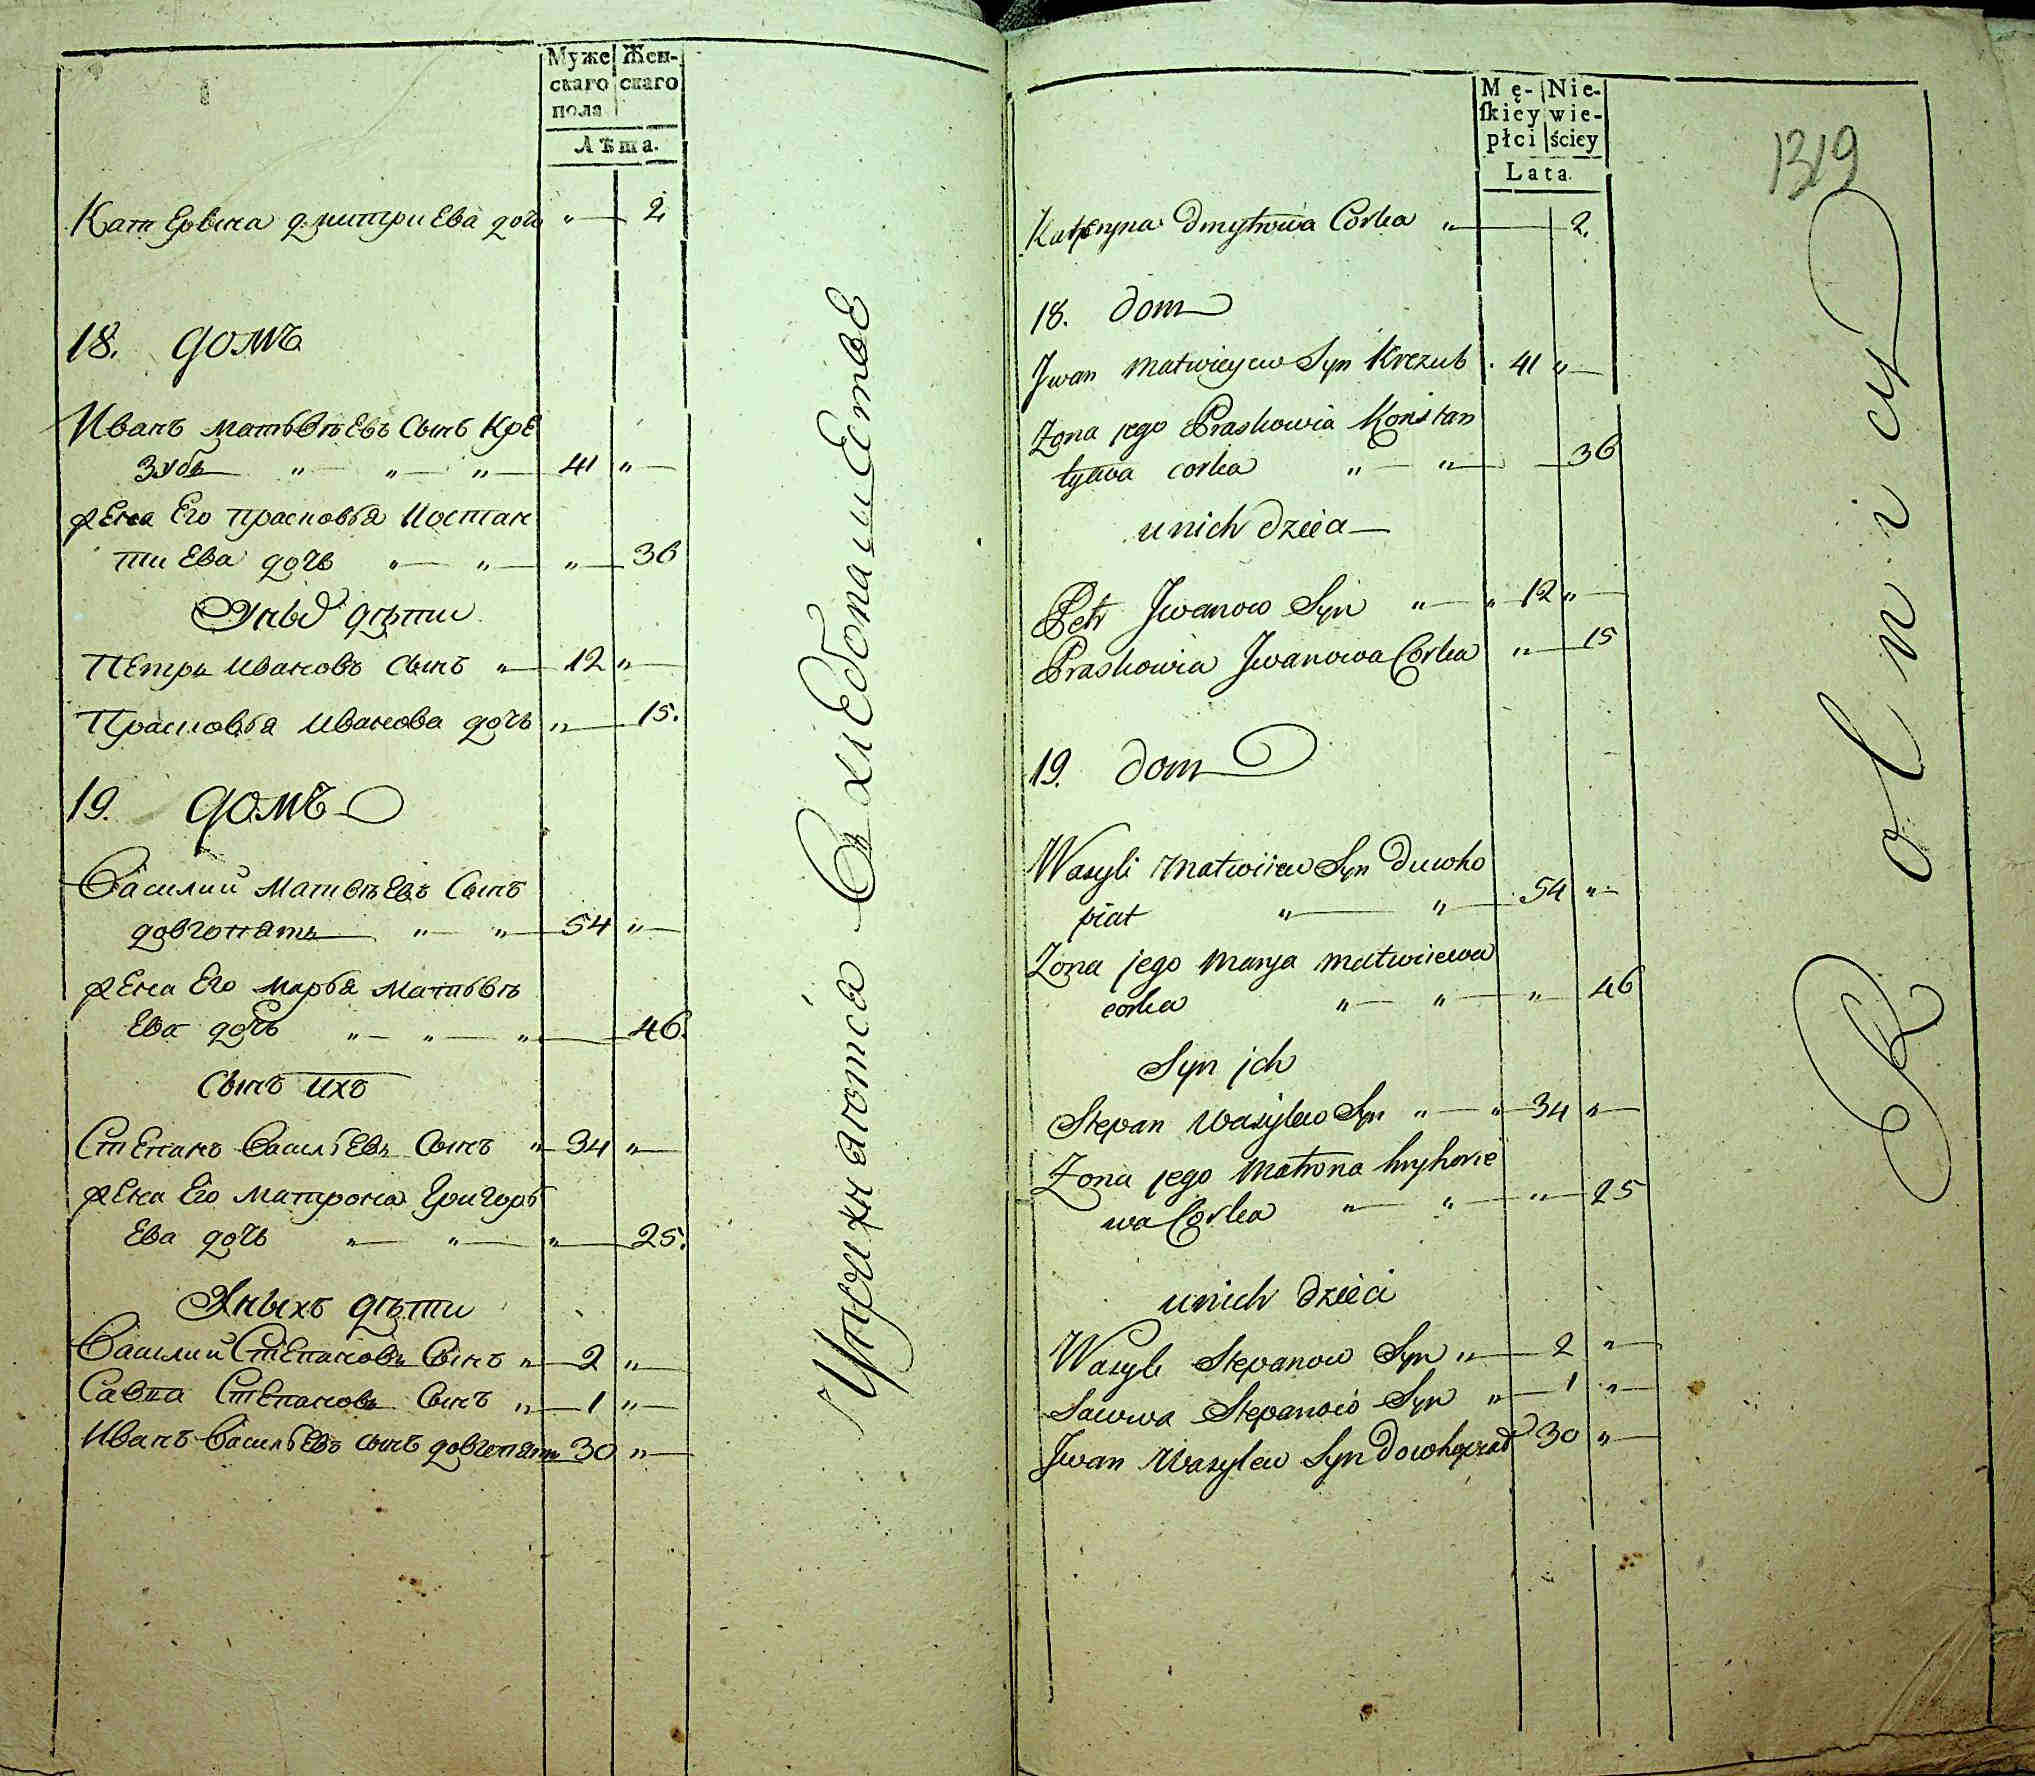 Муже Жен-
скаго скаго
пола
Лѣта.
Катерына дмитриева дочь " 2
18. домъ
Иванъ матьвѣевъ сынъ Кре
зубъ " " " 41 "
жена Его прасковья Костан
тиева дочь " " " 36
Уныхъ дѣти
Петръ Ивановъ сынъ " 12 "
Прасковья Иванова дочь " 15.
19. домъ
Василий Матвѣевъ Сынъ
довгопятъ " " 54 "
жена Его марья матьвѣ
Ева дочь " " " 46.
Сынъ ихъ
Степанъ Васильевъ Сынъ " 34 "
жена Его матрона Григорь
Ева дочь " " " 25.
Уныхъ дѣти
Василий Степановъ Сынъ " 2 "
Савва Степановъ Сынъ " 1 "
Иванъ Васильевъ сынъ довгопятъ 30 "
Упражняютса в хлебопашестве
Mę- Nie-
ſkiey wie-
płci ściey
Lata.
1319
Kateryna Dmytrowa Corka " 2.
18. dom
Jwan Matwieyew Syn Krezub 41 "
Zona jego Praskowia Konstan
tyiwa corka " " 36
unich dzieca
Petr Jwanow Syn " " 12 "
Praskowia Jwanowa Corka " 15
19. dom
Wasyli Matwiiew Syn Duwho
piat " " 54 "
Zona jego Marya matwiiewa
corka " " " 46
Syn jch
Stepan Wasylew Syn " " 34 "
Zona jego Matrona hryhorie
wa Corka " " " 25
unich dzieci
Wasyli Stepanow Syn " 2 "
Sawwa Stepanow Syn " 1 "
Jwan Wasylew Syn Dowhopiat 30 "
Rolnicy